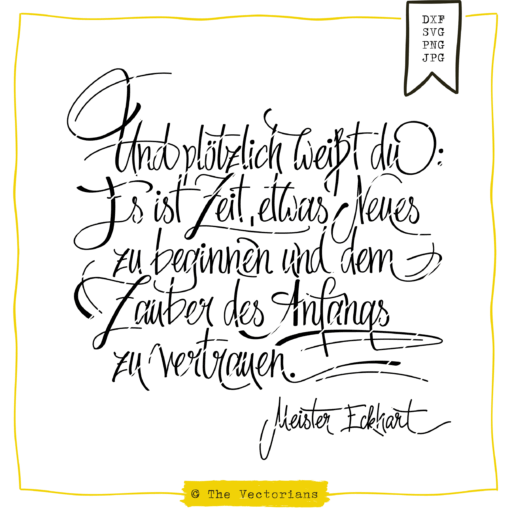 DXF
SVG
PNG
JPG
Und plötzlich weißt du:
Es ist Zeit, etwas Neues
zu beginnen und dem
Zauber des Anfangs
zu vertrauen.
Meister Eckhart
© The Vectorians